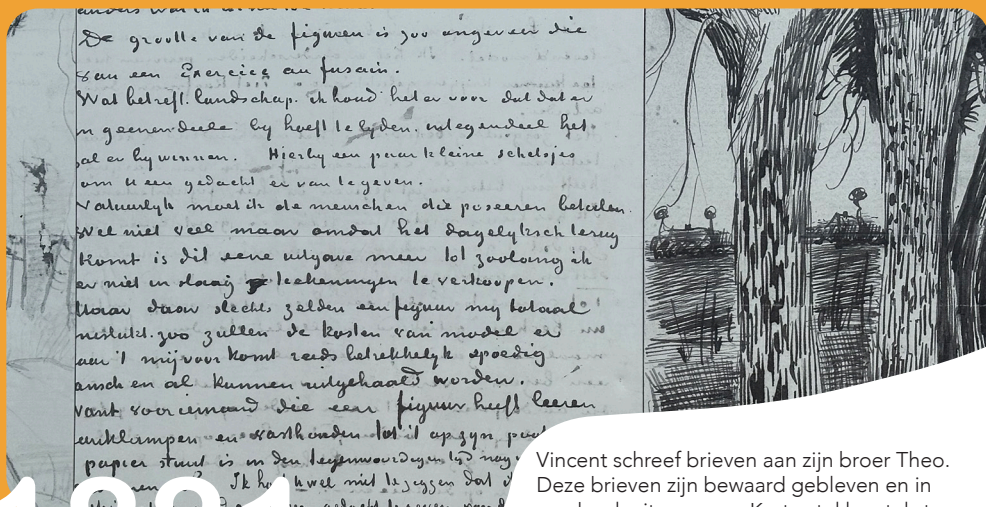 De grootte van de figuren is zoo ongeveer die
van een Exercice au fusain.
Wat betreft landschap. ik houd het er voor dat dat er
n geenendeele by hoeft te lyden. integendeel het
al er by winnen. Hierby een paar kleine schetsjes
om U een gedacht er van te geven.
Natuurlyk moet ik de menschen die poseeren betalen.
Wel niet veel maar omdat het dagelyksch terug
komt is dit eene uitgave meer tot zoolang ik
er niet in slaag teekeningen te verkoopen.
Maar daar slechts zelden een figuur my totaal
mislukt. zoo zullen de kosten van model er
aan 't mij voor komt reeds betrekkelyk spoedig
ansch en al kunnen uitgehaald worden.
Want voor iemand die een figuur heeft leeren
anklampen en vasthouden tot 't op zyn
papier staat is in den tegenwoordigen tyd nog
Ik hoef wel niet te zeggen dat
1881
Vincent schreef brieven aan zijn broer Theo.
Deze brieven zijn bewaard gebleven en in